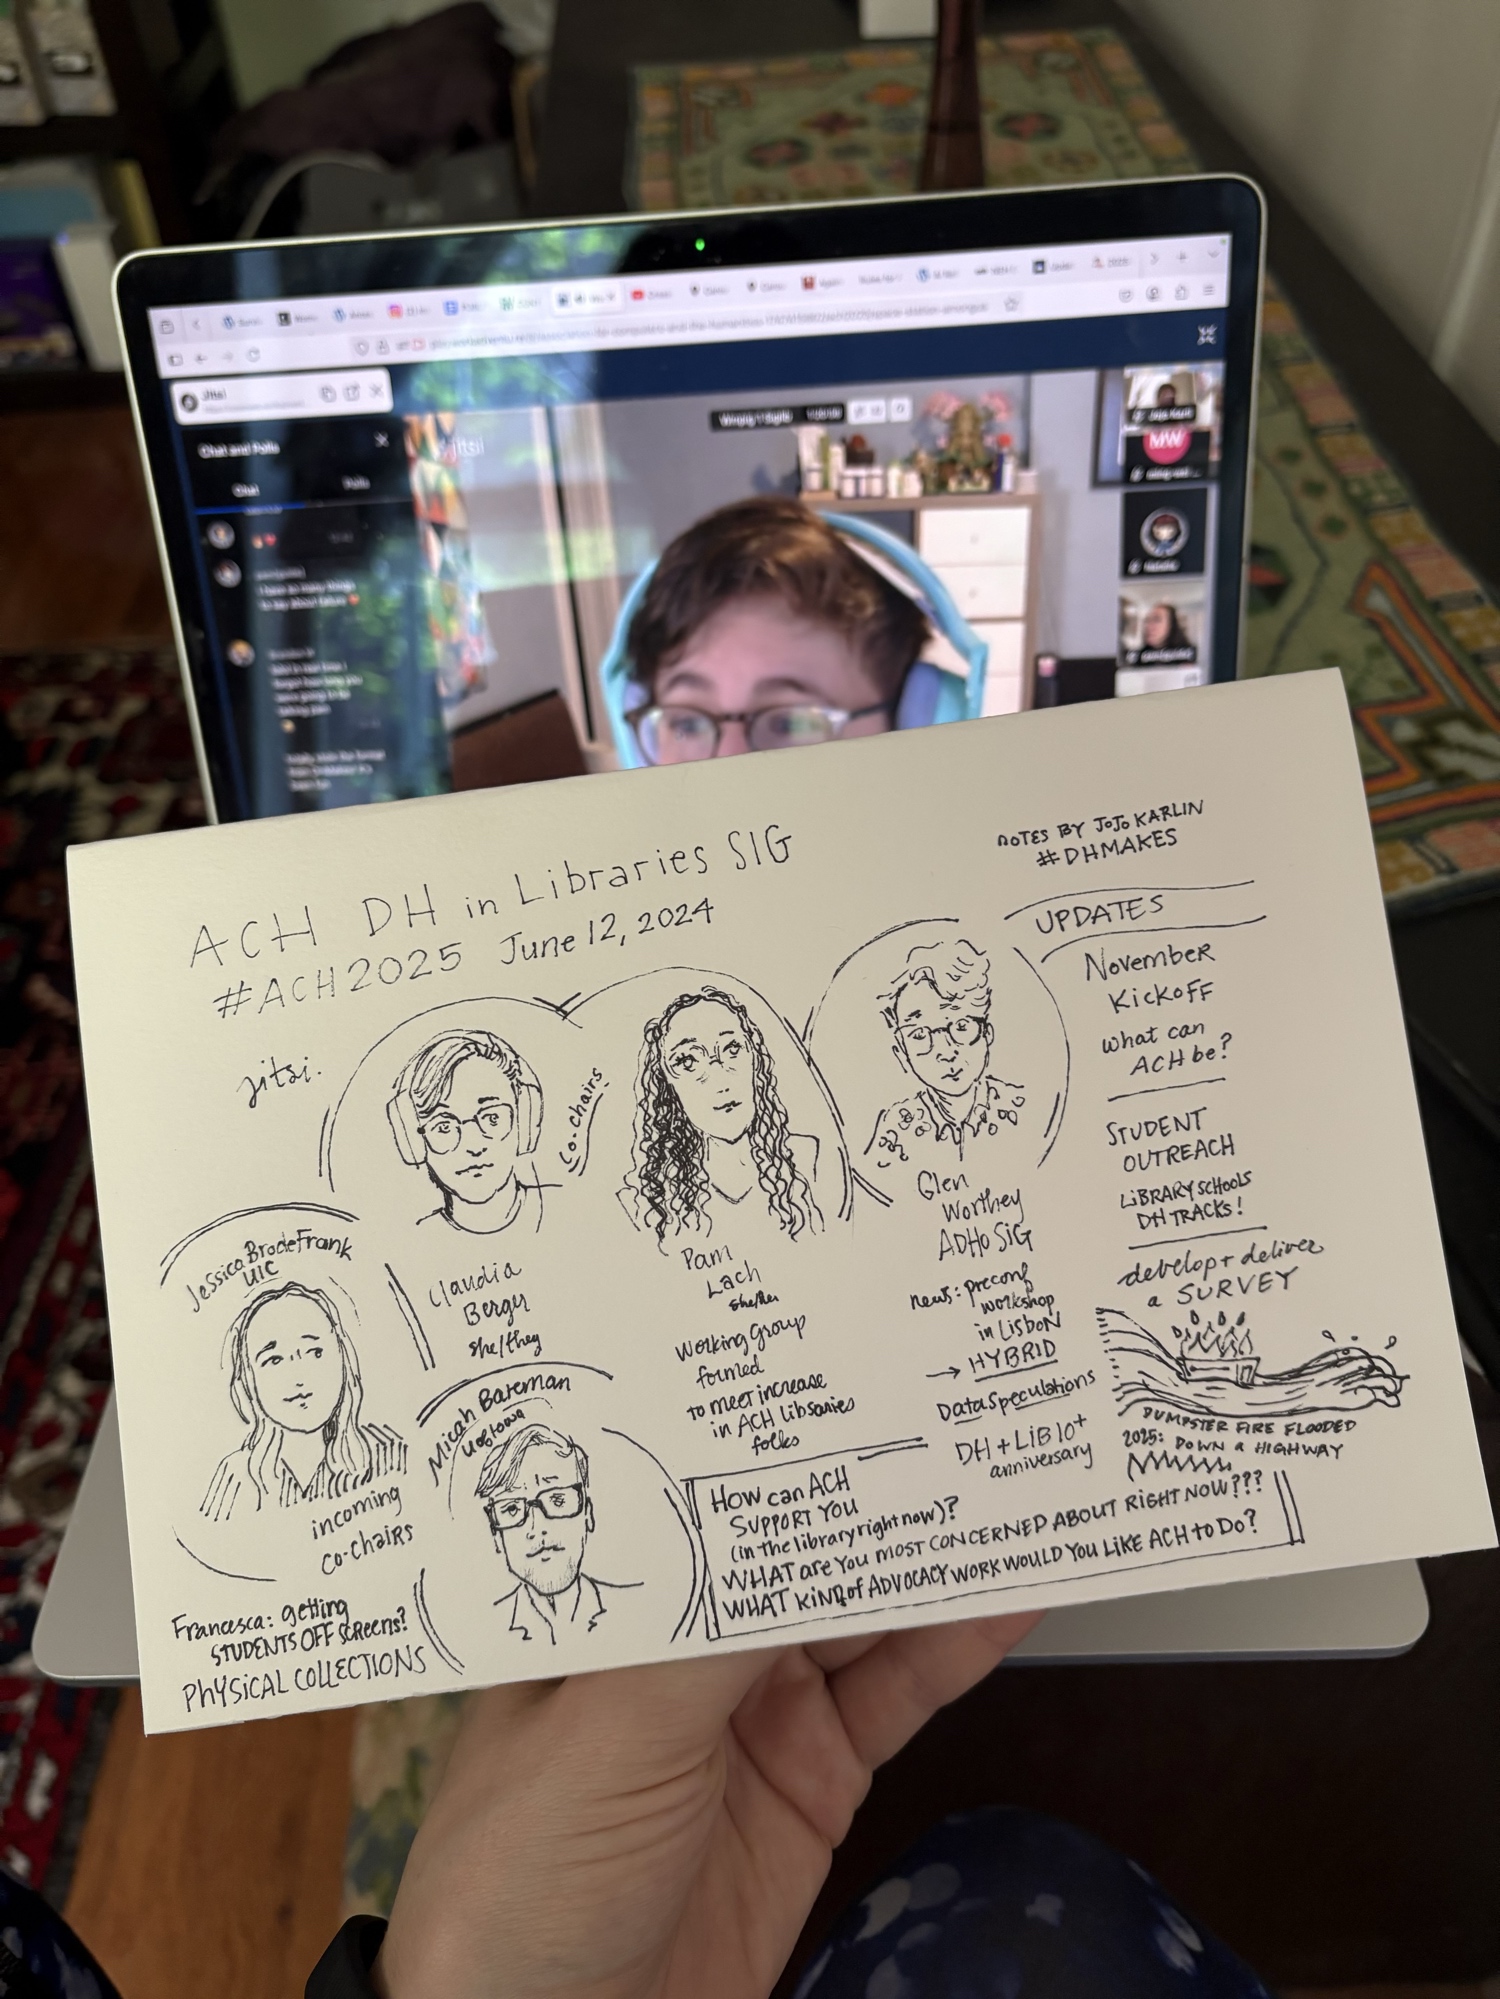 Jitsi
Chat and Polls
Chat
Polls
jitsi
MW
ACH DH in Libraries SIG
#ACH2025 June 12, 2024
NOTES BY JOJO KARLIN
#DHMAKES
jitsi.
co-chairs
Jessica BrodeFrank
UIC
incoming
co-chairs
Claudia
Berger
she/they
Pam
Lach
she/her
Working Group
formed
to meet increase
in ACH libraries
folks
Glen
Worthey
ADHO SIG
news: preconf
workshop
in LISBON
→ HYBRID
Data Speculations
DH + LIB 10+
anniversary
Micah Bateman
UofIowa
Francesca: getting
STUDENTS OFF SCREENS?
PHYSICAL COLLECTIONS
UPDATES
November
Kickoff
what can
ACH be?
STUDENT
OUTREACH
LIBRARY SCHOOLS
DH TRACKS!
develop + deliver
a SURVEY
DUMPSTER FIRE FLOODED
2025: DOWN a HIGHWAY
How can ACH
SUPPORT YOU
(in the library right now)?
WHAT are YOU MOST CONCERNED ABOUT RIGHT NOW???
WHAT KIND of ADVOCACY WORK WOULD YOU LIKE ACH to DO?